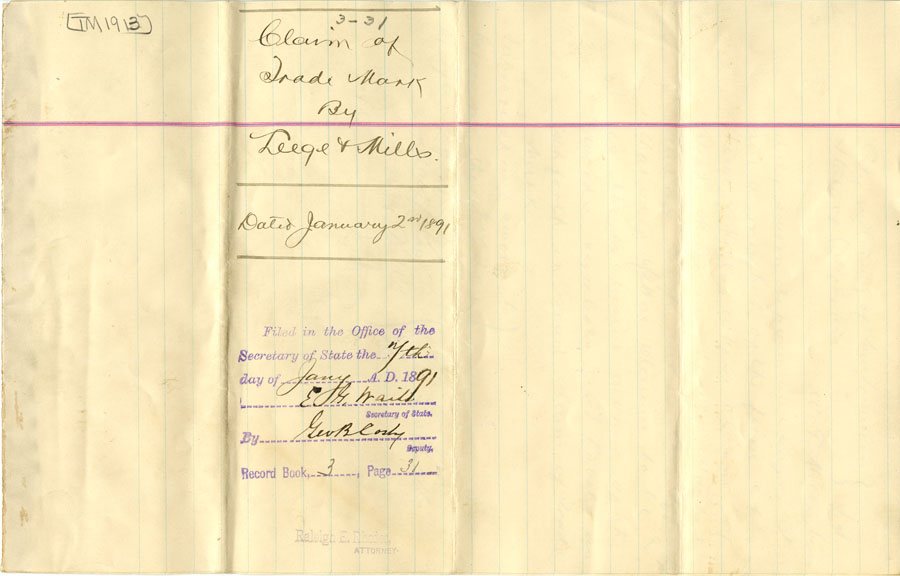 TM1913
3-31
Claim of
Trade Mark
By
Leege & Mills.
Dated January 2nd 1891
Filed in the Office of the
Secretary of State the 7th
day of Jany A. D. 1891
E. G. Waite
Secretary of State.
By Geo B Cosby
Deputy.
Record Book, 3, Page 31
Raleigh E.
ATTORNEY